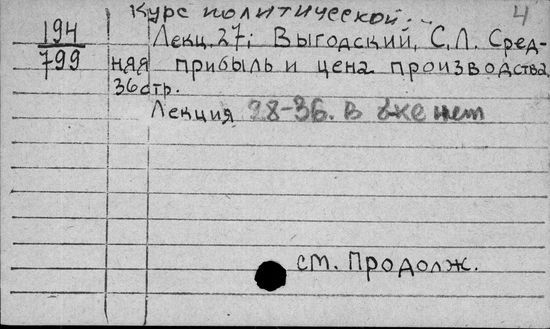 Курс политической... 4
194
799
Лекц. 27; Выгодский, С.Л. Сред-
няя прибыль и цена производства
36стр.
Лекция 28-36. В
нет
см. Продолж.